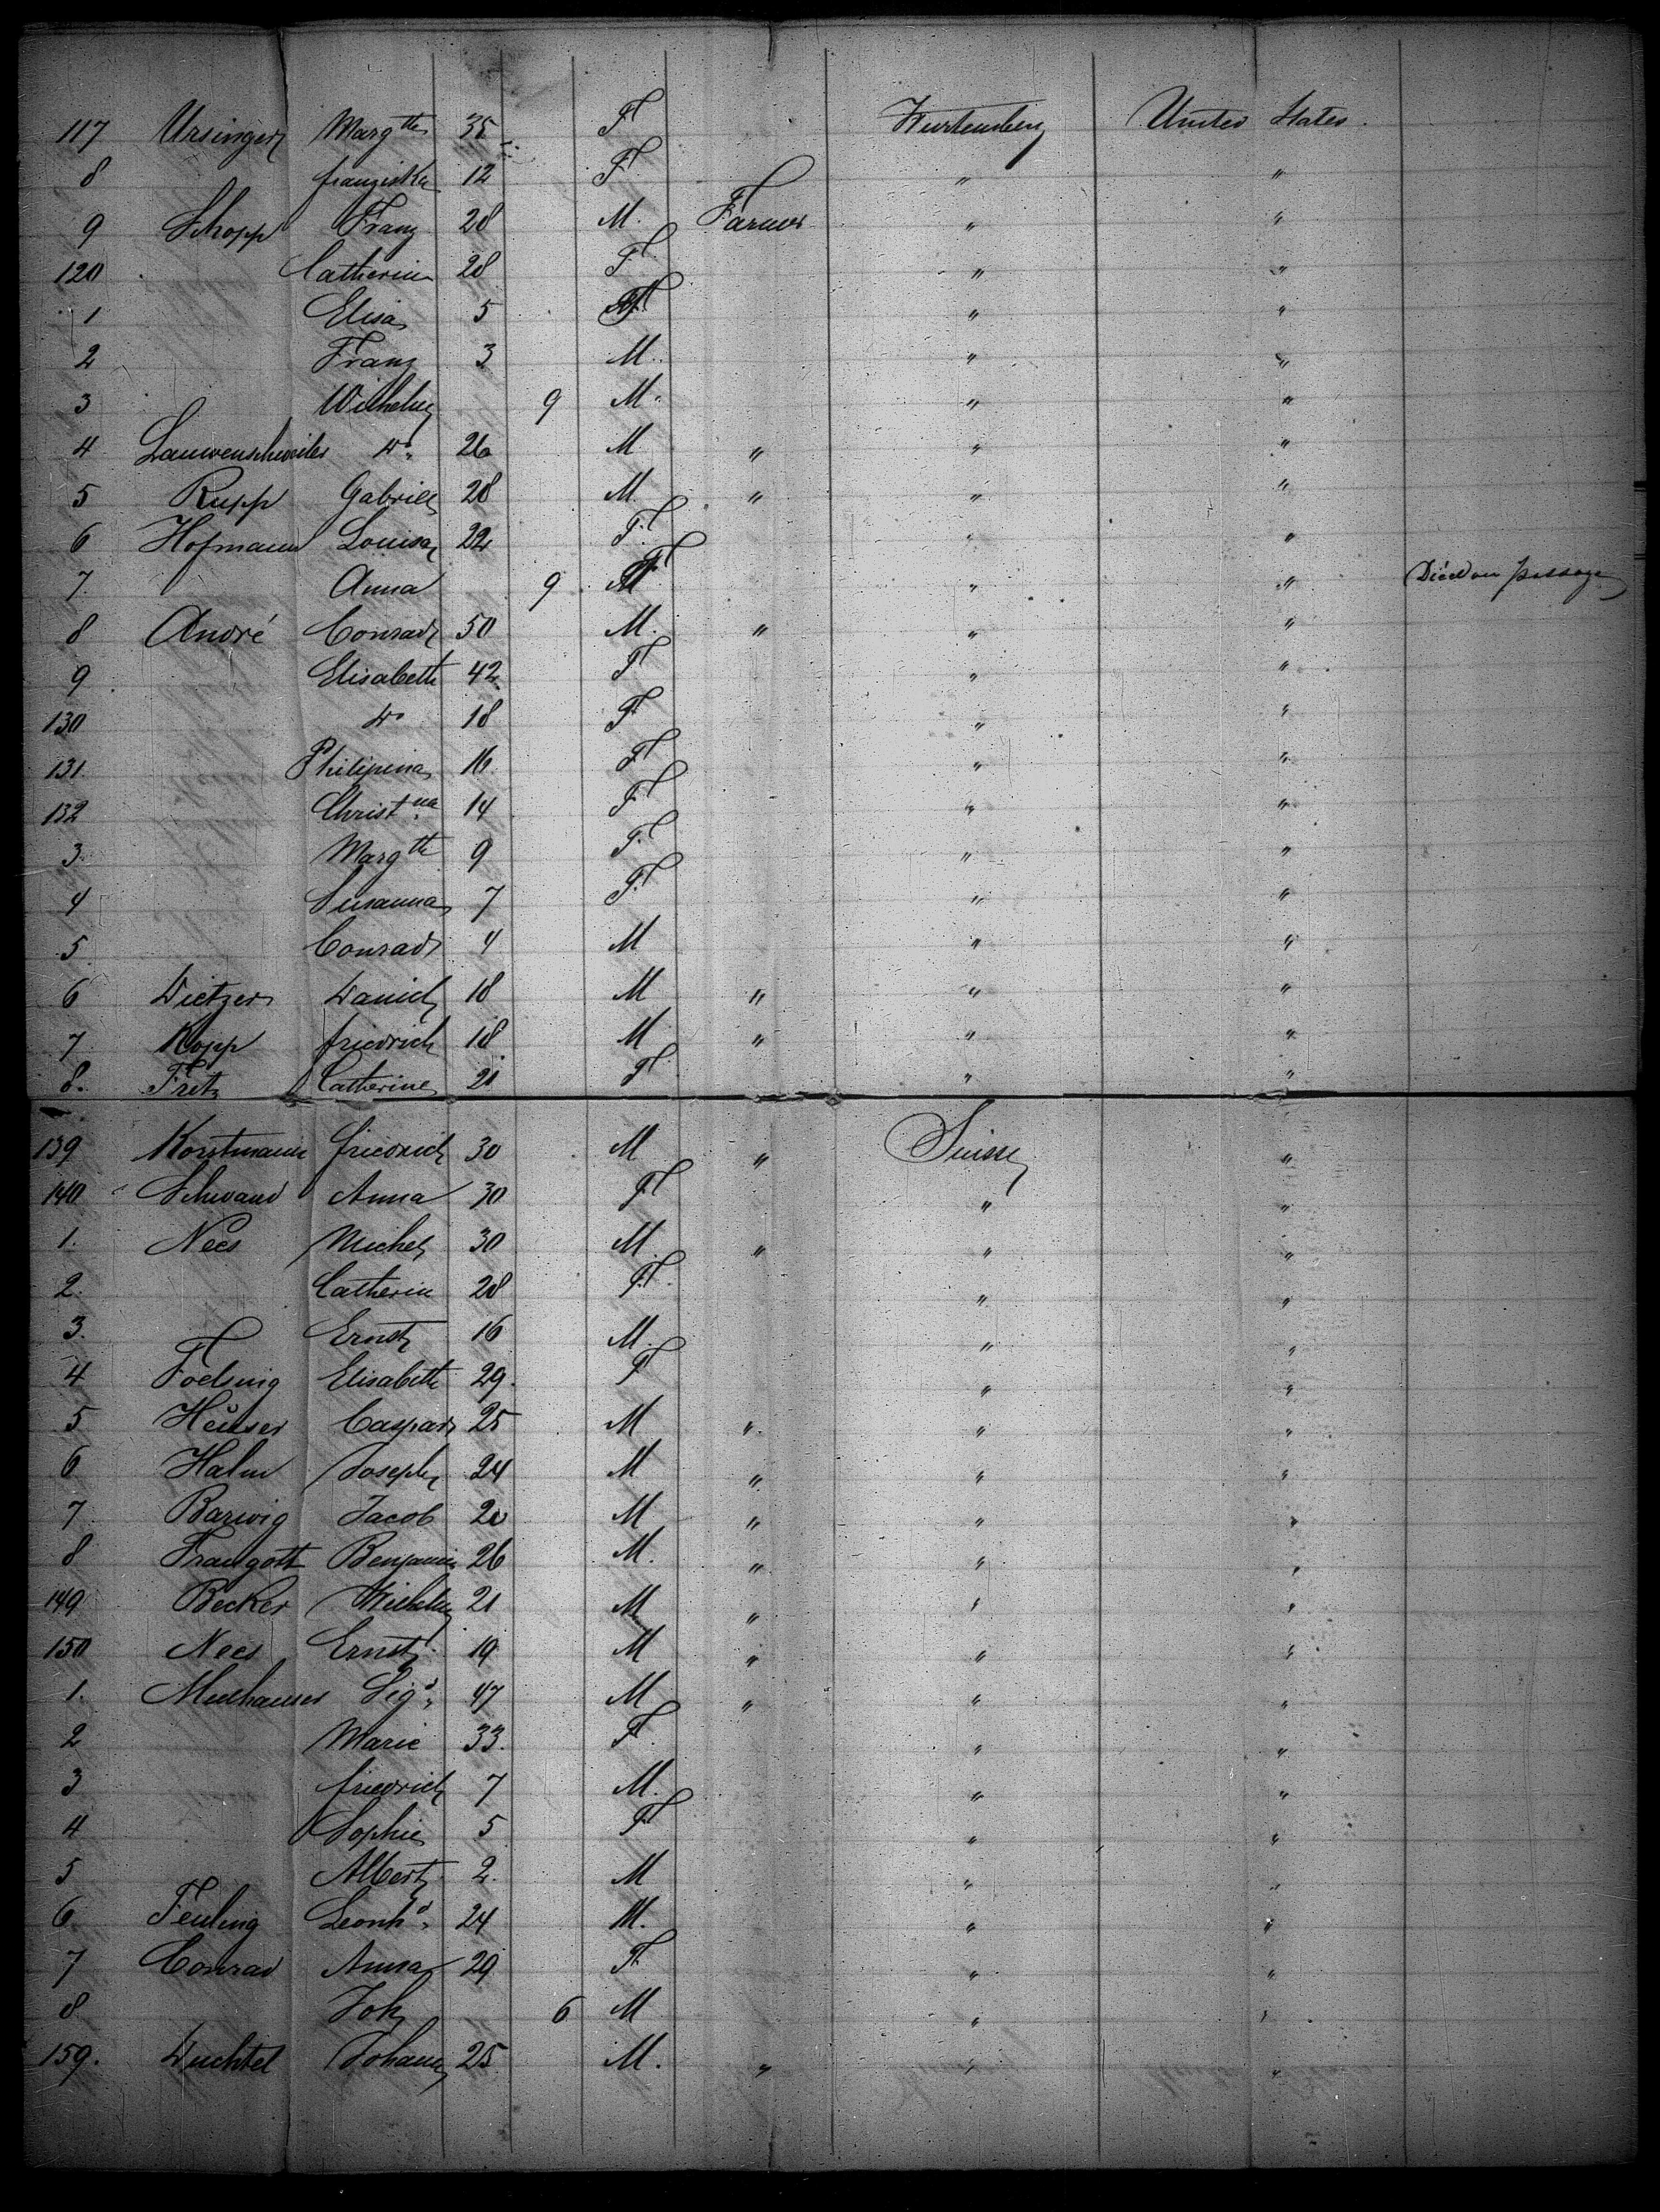 117 Ursinger Marg^the 35 F Wurtemberg United States.
8 franziska 12 F " "
9 Schopp Franz 28 M. Farmer " "
120 Catherin 28 F " "
1 Elisa 5 F " "
2 Franz 3 M. " "
3 Wilhelm 9 M. " "
4 Lauwenschweiler d° 26 M " " "
5 Rupp Gabriel 28 M. " " "
6 Hofmann Louisa 22 F. " "
7. Anna 9 F " " Died on passage
8 André Conrad 50 M. " " "
9 Elisabeth 42 F " "
130 d° 18 F " "
131. Philipina 16 F " "
132 Christ^na 14 F " "
3. Marg^the 9 F. " "
4 Susanna 7 F. " "
5. Conrad 4 M " "
6 Dietzer Daniel 18 M " " "
7 Kopp friedrich 18 M " " "
8. Fretz Catherine 21 F " "
139 Korstmann friedrich 30 M " Suisse "
140 Schwand Anna 30 F " "
1. Nees Michel 30 M. " " "
2. Catherin 28 F. " "
3. Ernst 16 M. " "
4 Foelsing Elisabeth 29. F " "
5 Heuser Caspar 25 M " " "
6 Halm Joseph 24 M " " "
7 Barwig Jacob 20 M " " "
8 Traugott Benjamin 26 M. " " "
149 Becker Wilhelm 21 M " " "
150 Nees Ernst 19 M " " "
1. Mulhauser Sig^d. 47 M " " "
2 Marie 33. F. " "
3 friedrich 7 M. " "
4 Sophie 5 F " "
5 Albert 2. M " "
6. Feuling Leonh^d. 24 M. " "
7 Conrad Anna 29 F " "
8 Joh 6 M " "
159. Wuchtel Johann 25 M. " " "